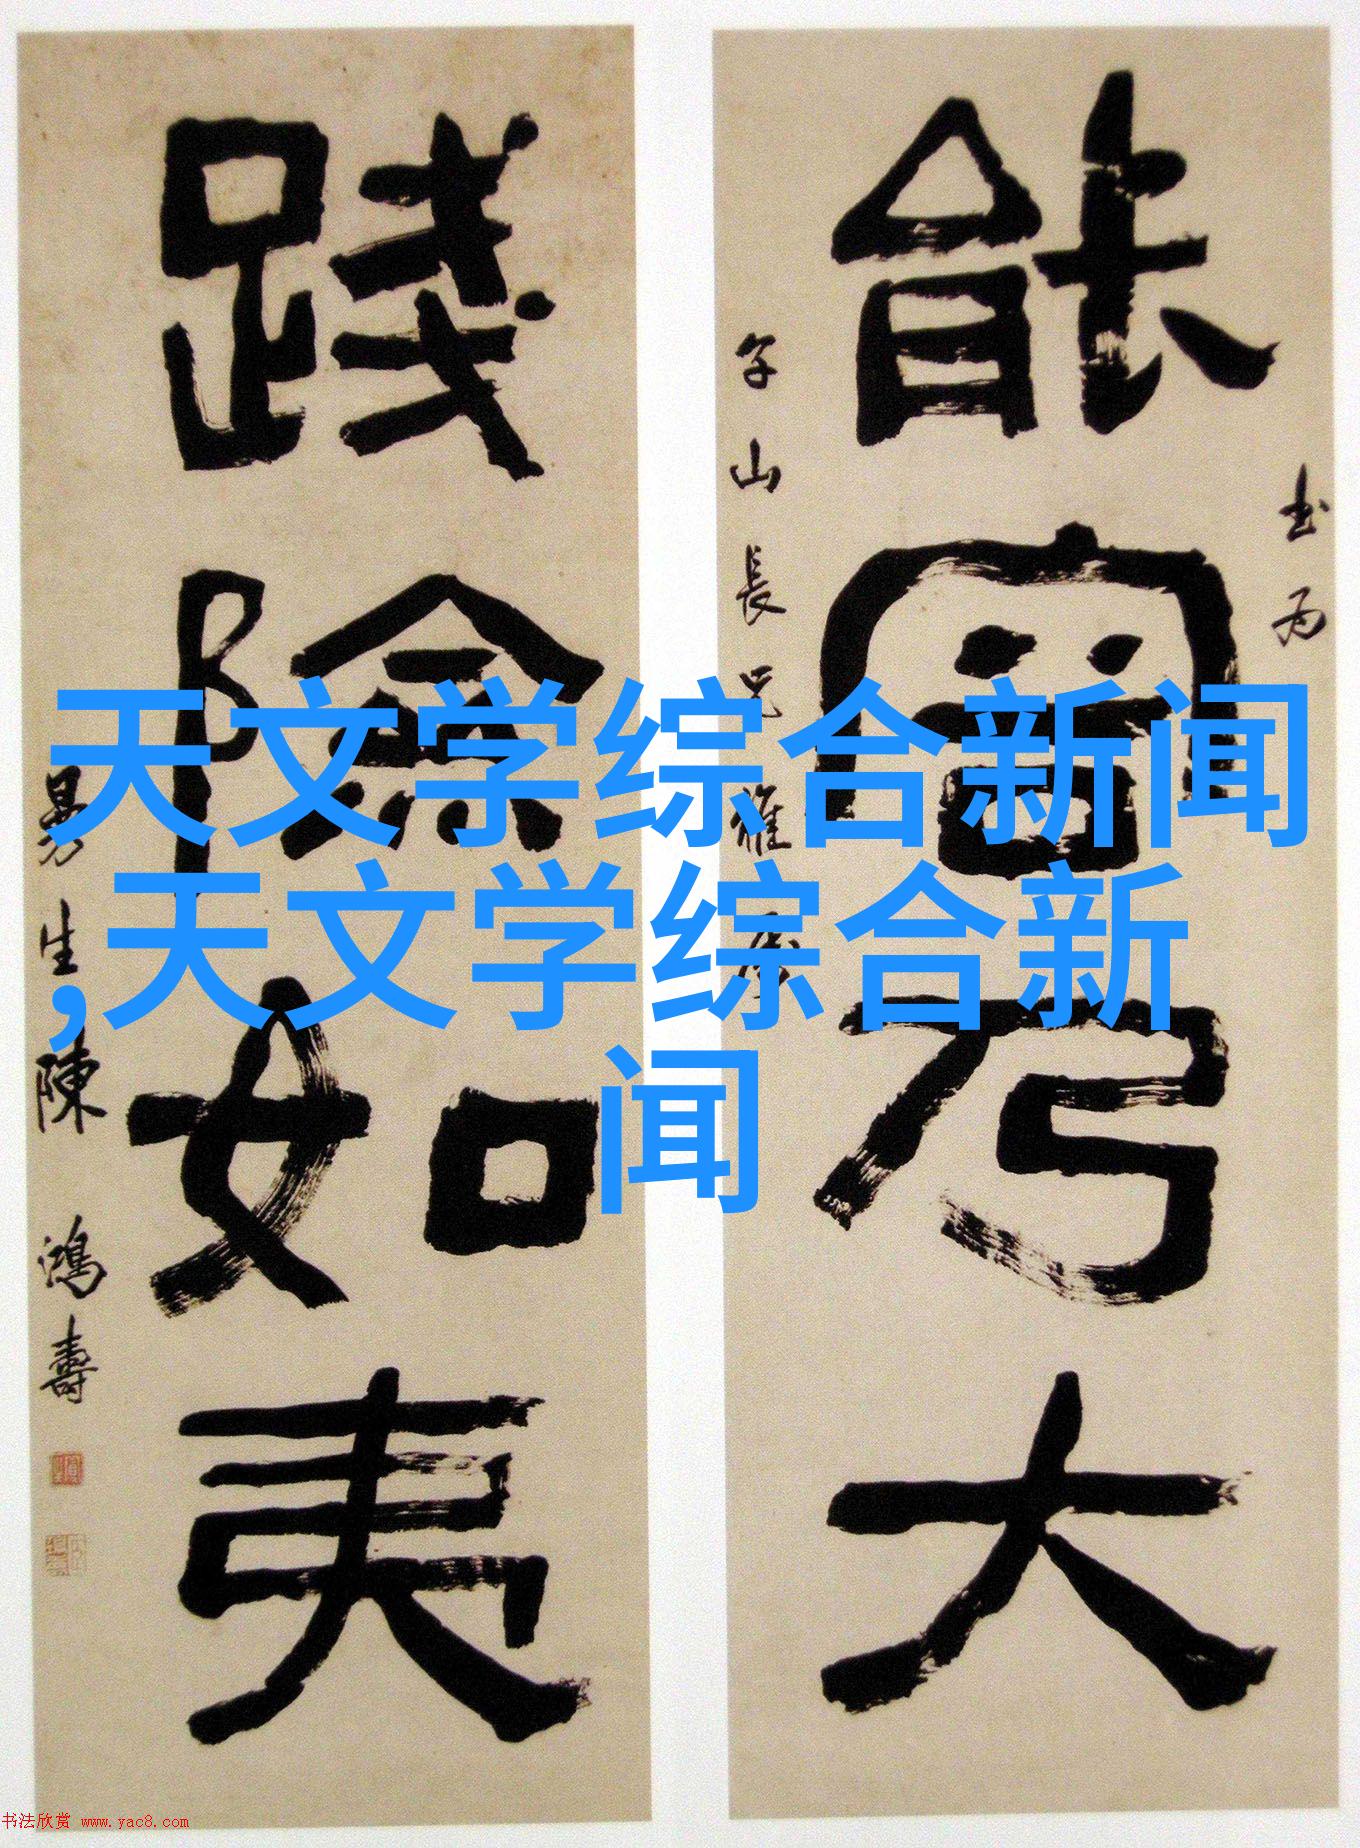 書為
能容乃大
山長兄雅屬
踐險如夷
曼生陳鴻壽
天文学综合新闻
,天文学综合新
闻
书法欣赏 www.yac8.com